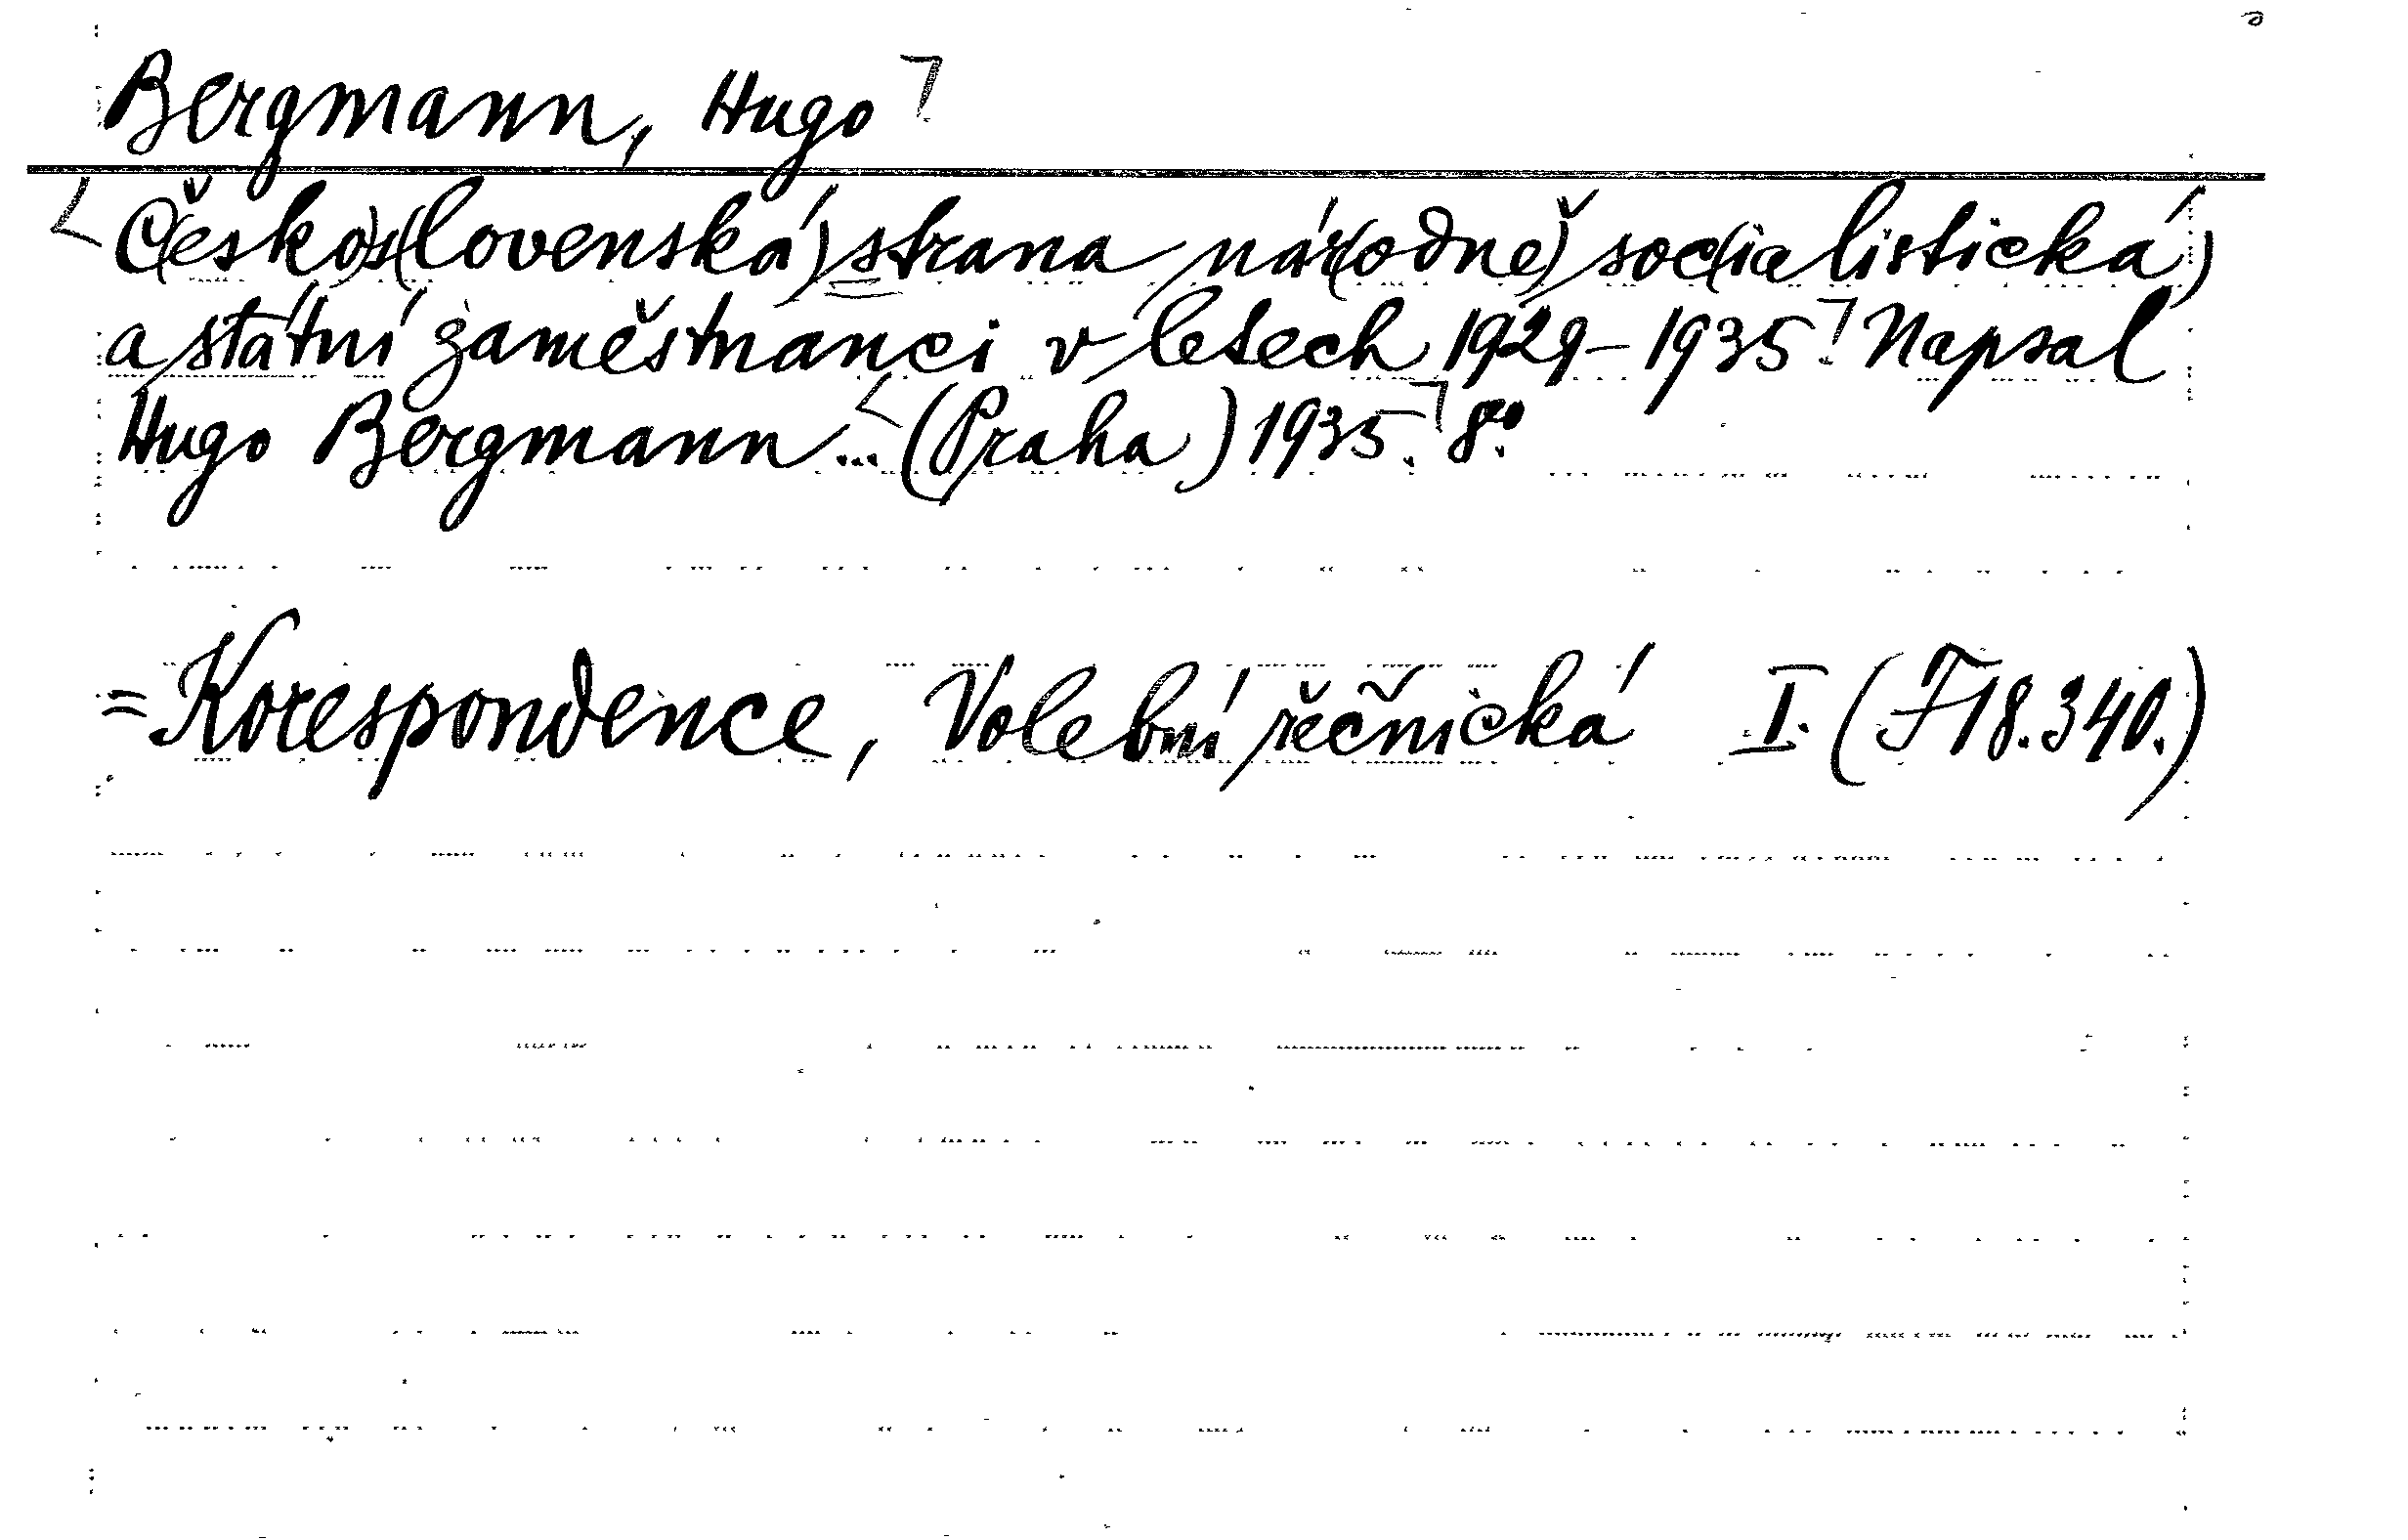 Bergmann, Hugo
Č(esko)s(lovenská) strana nár(odně) soc(ialistická)
a státní zaměstnanci v letech 1929-1935. Napsal
Hugo Bergmann... (Praha) 1935. 8°.
= Korespondence, Volební řečnická I. (F18.340.)